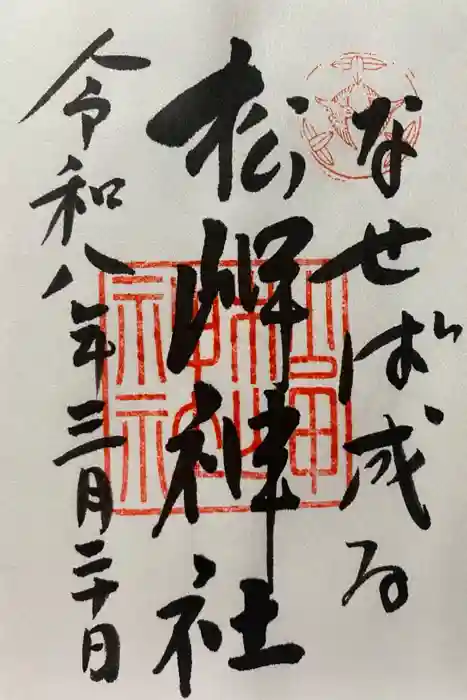 なせば成る
松岬神社
令和八年三月二十日